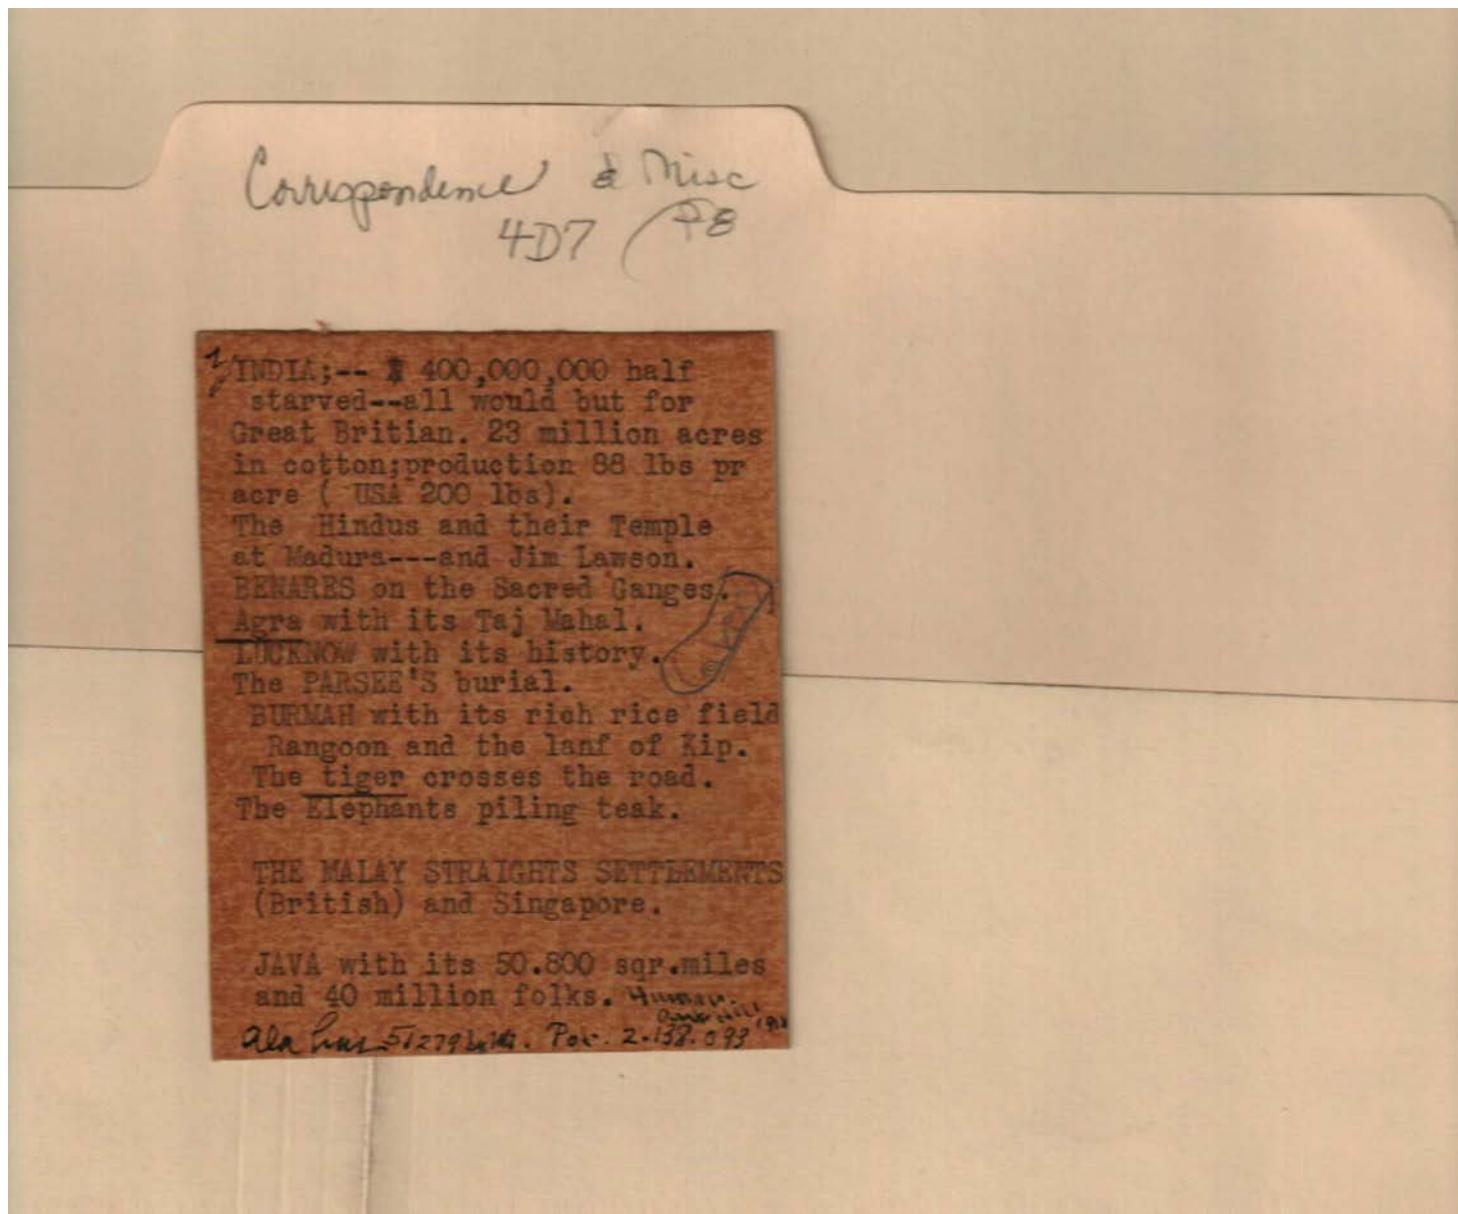 Correspondence & Misc
4D7 P8
INDIA;-- 400,000,000 half
starved--all would but for
Great Britian. 23 million acres
in cotton;production 88 lbs pr
acre ( USA 200 lbs).
The Hindus and their Temple
at Madura---and Jim Lawson.
BENARES on the Sacred Ganges.
Agra with its Taj Mahal.
LUCKNOW with its history.
The PARSEE'S burial.
BURMAH with its rich rice field
Rangoon and the lanf of Kip.
The tiger crosses the road.
The Elephants piling teak.
THE MALAY STRAIGHTS SETTLEMENTS
(British) and Singapore.
JAVA with its 50.800 sqr.miles
and 40 million folks.
Ala has 51279 Pop. 2.138.093